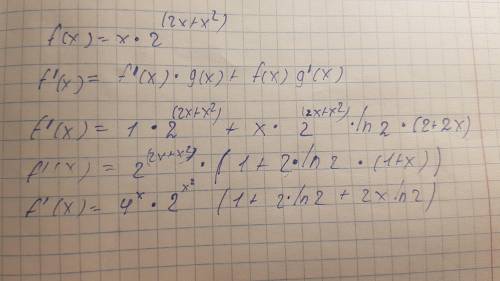 f(x) = x • 2^(2x+x²)
f'(x) = f'(x) • g(x) + f(x) g'(x)
f'(x) = 1 • 2^(2x+x²) + x • 2^(2x+x²) • ln 2 • (2+2x)
f'(x) = 2^(2x+x²) • ( 1 + 2 • ln 2 • (1+x) )
f'(x) = 4^x • 2^x² ( 1 + 2 • ln 2 + 2x ln 2 )